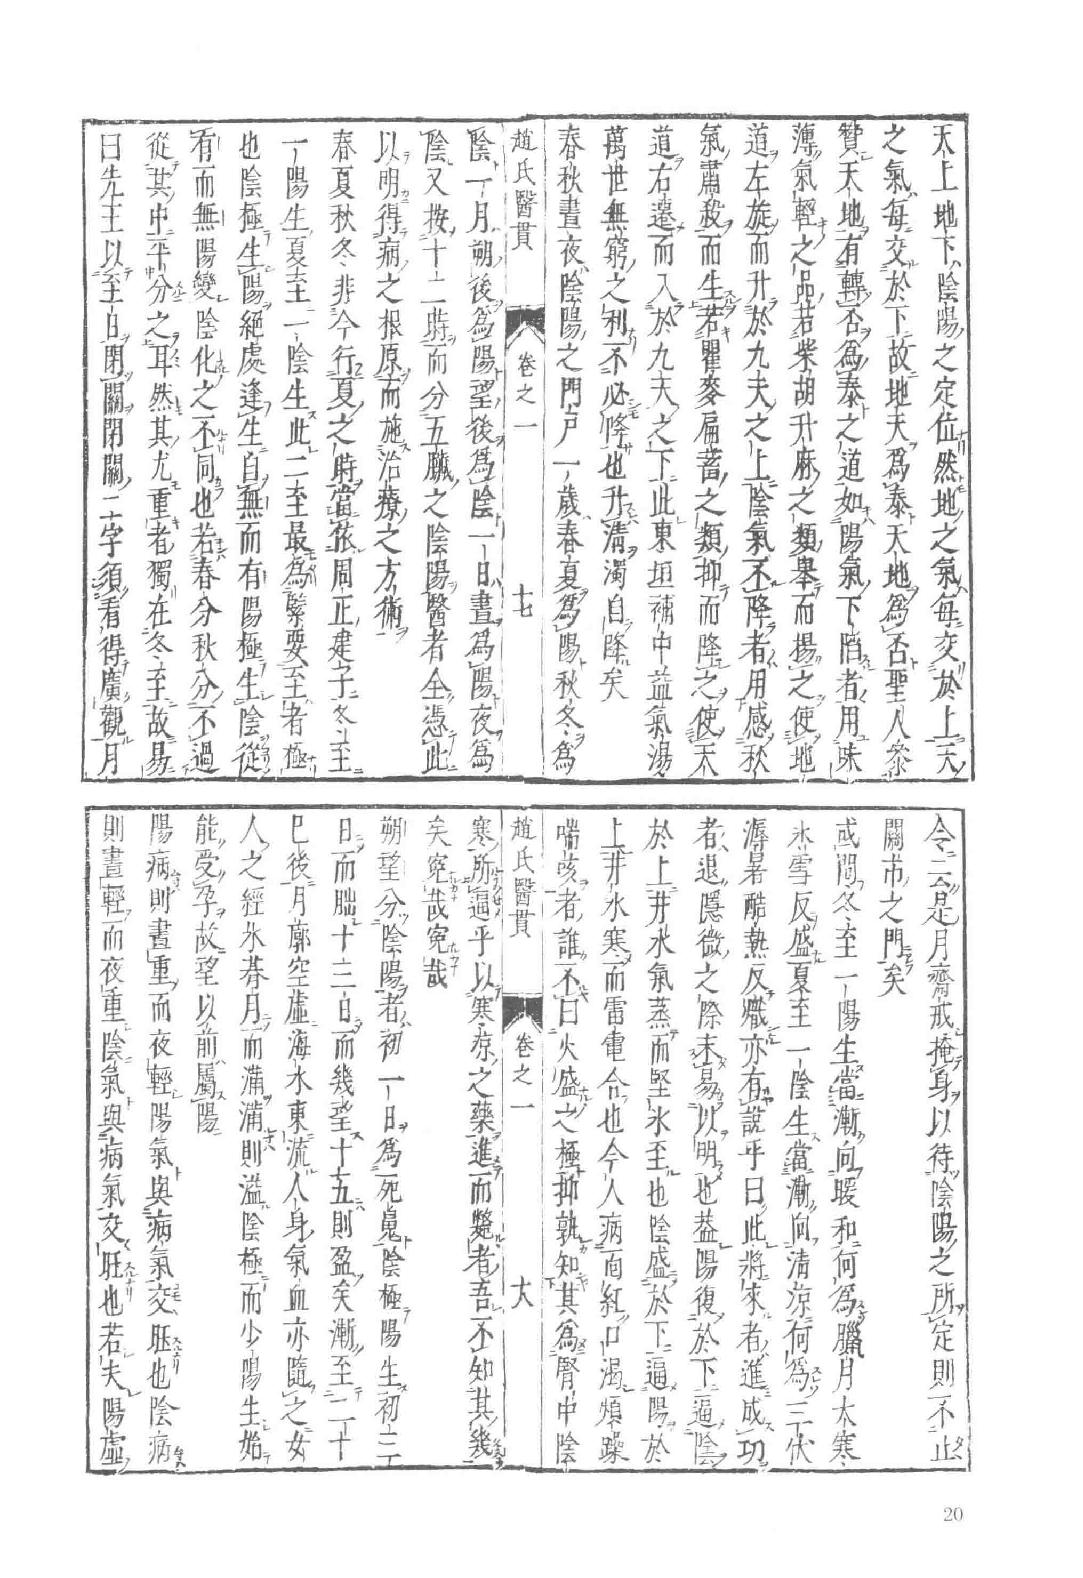 天上地下陰陽之定位然地之氣每交於上天
之氣每交於下故地天爲泰天地爲否聖人參
贊天地有轉否爲泰之道如陽氣下陷者用味
薄氣輕之品若柴胡升麻之類舉而揚之使地
道左旋而升於九天之上陰氣不降者用感秋
氣肅殺而生若瞿麥扁蓄之類抑而降之使天
道右遷而入於九天之下此東垣補中益氣湯
萬世無窮之利不必降也升清濁自降矣
春秋晝夜陰陽之門戶一歲春夏爲陽秋冬爲
趙氏醫貫 卷之一 十七
陰一月朔後爲陽望後爲陰一日晝爲陽夜爲
陰又按十二時而分五臟之陰陽醫者全憑此
以明得病之根原而施治療之方術
春夏秋冬非今行夏之時當依周正建子冬至
一陽生夏至一陰生此二至最爲緊要至者極
也陰極生陽絕處逢生自無而有陽極生陰從
有而無陽變陰化之不同也若春分秋分不過
從其中平分之耳然其尤重者獨在冬至故易
曰先王以至日閉關閉關二字須看得廣觀月
令云是月齋戒掩身以待陰陽之所定則不止
關市之門矣
或問冬至一陽生當漸向暖和何爲臘月大寒
氷雪反盛夏至一陰生當漸向清涼何爲三伏
溽暑酷熱反熾亦有說乎曰此將來者進成功
者退隱微之際未易以明也葢陽復於下逼陰
於上井水氣蒸而堅氷至也陰盛於下逼陽於
上井水寒而雷電合也今人病面紅口渴煩躁
喘咳者誰不曰火盛之極抑孰知其爲腎中陰
趙氏醫貫 卷之一 十八
寒所逼乎以寒凉之藥進而斃者吾不知其幾
矣寃哉寃哉
朔望分陰陽者初一日爲死魄陰極陽生初三
日而朏十三日而幾望十五則盈矣漸至二十
已後月廓空虛海水東流人身氣血亦隨之女
人之經水朞月而滿滿則溢陰極而少陽生始
能受孕故望以前屬陽
陽病則晝重而夜輕陽氣與病氣交旺也陰病
則晝輕而夜重陰氣與病氣交旺也若夫陽虛
20